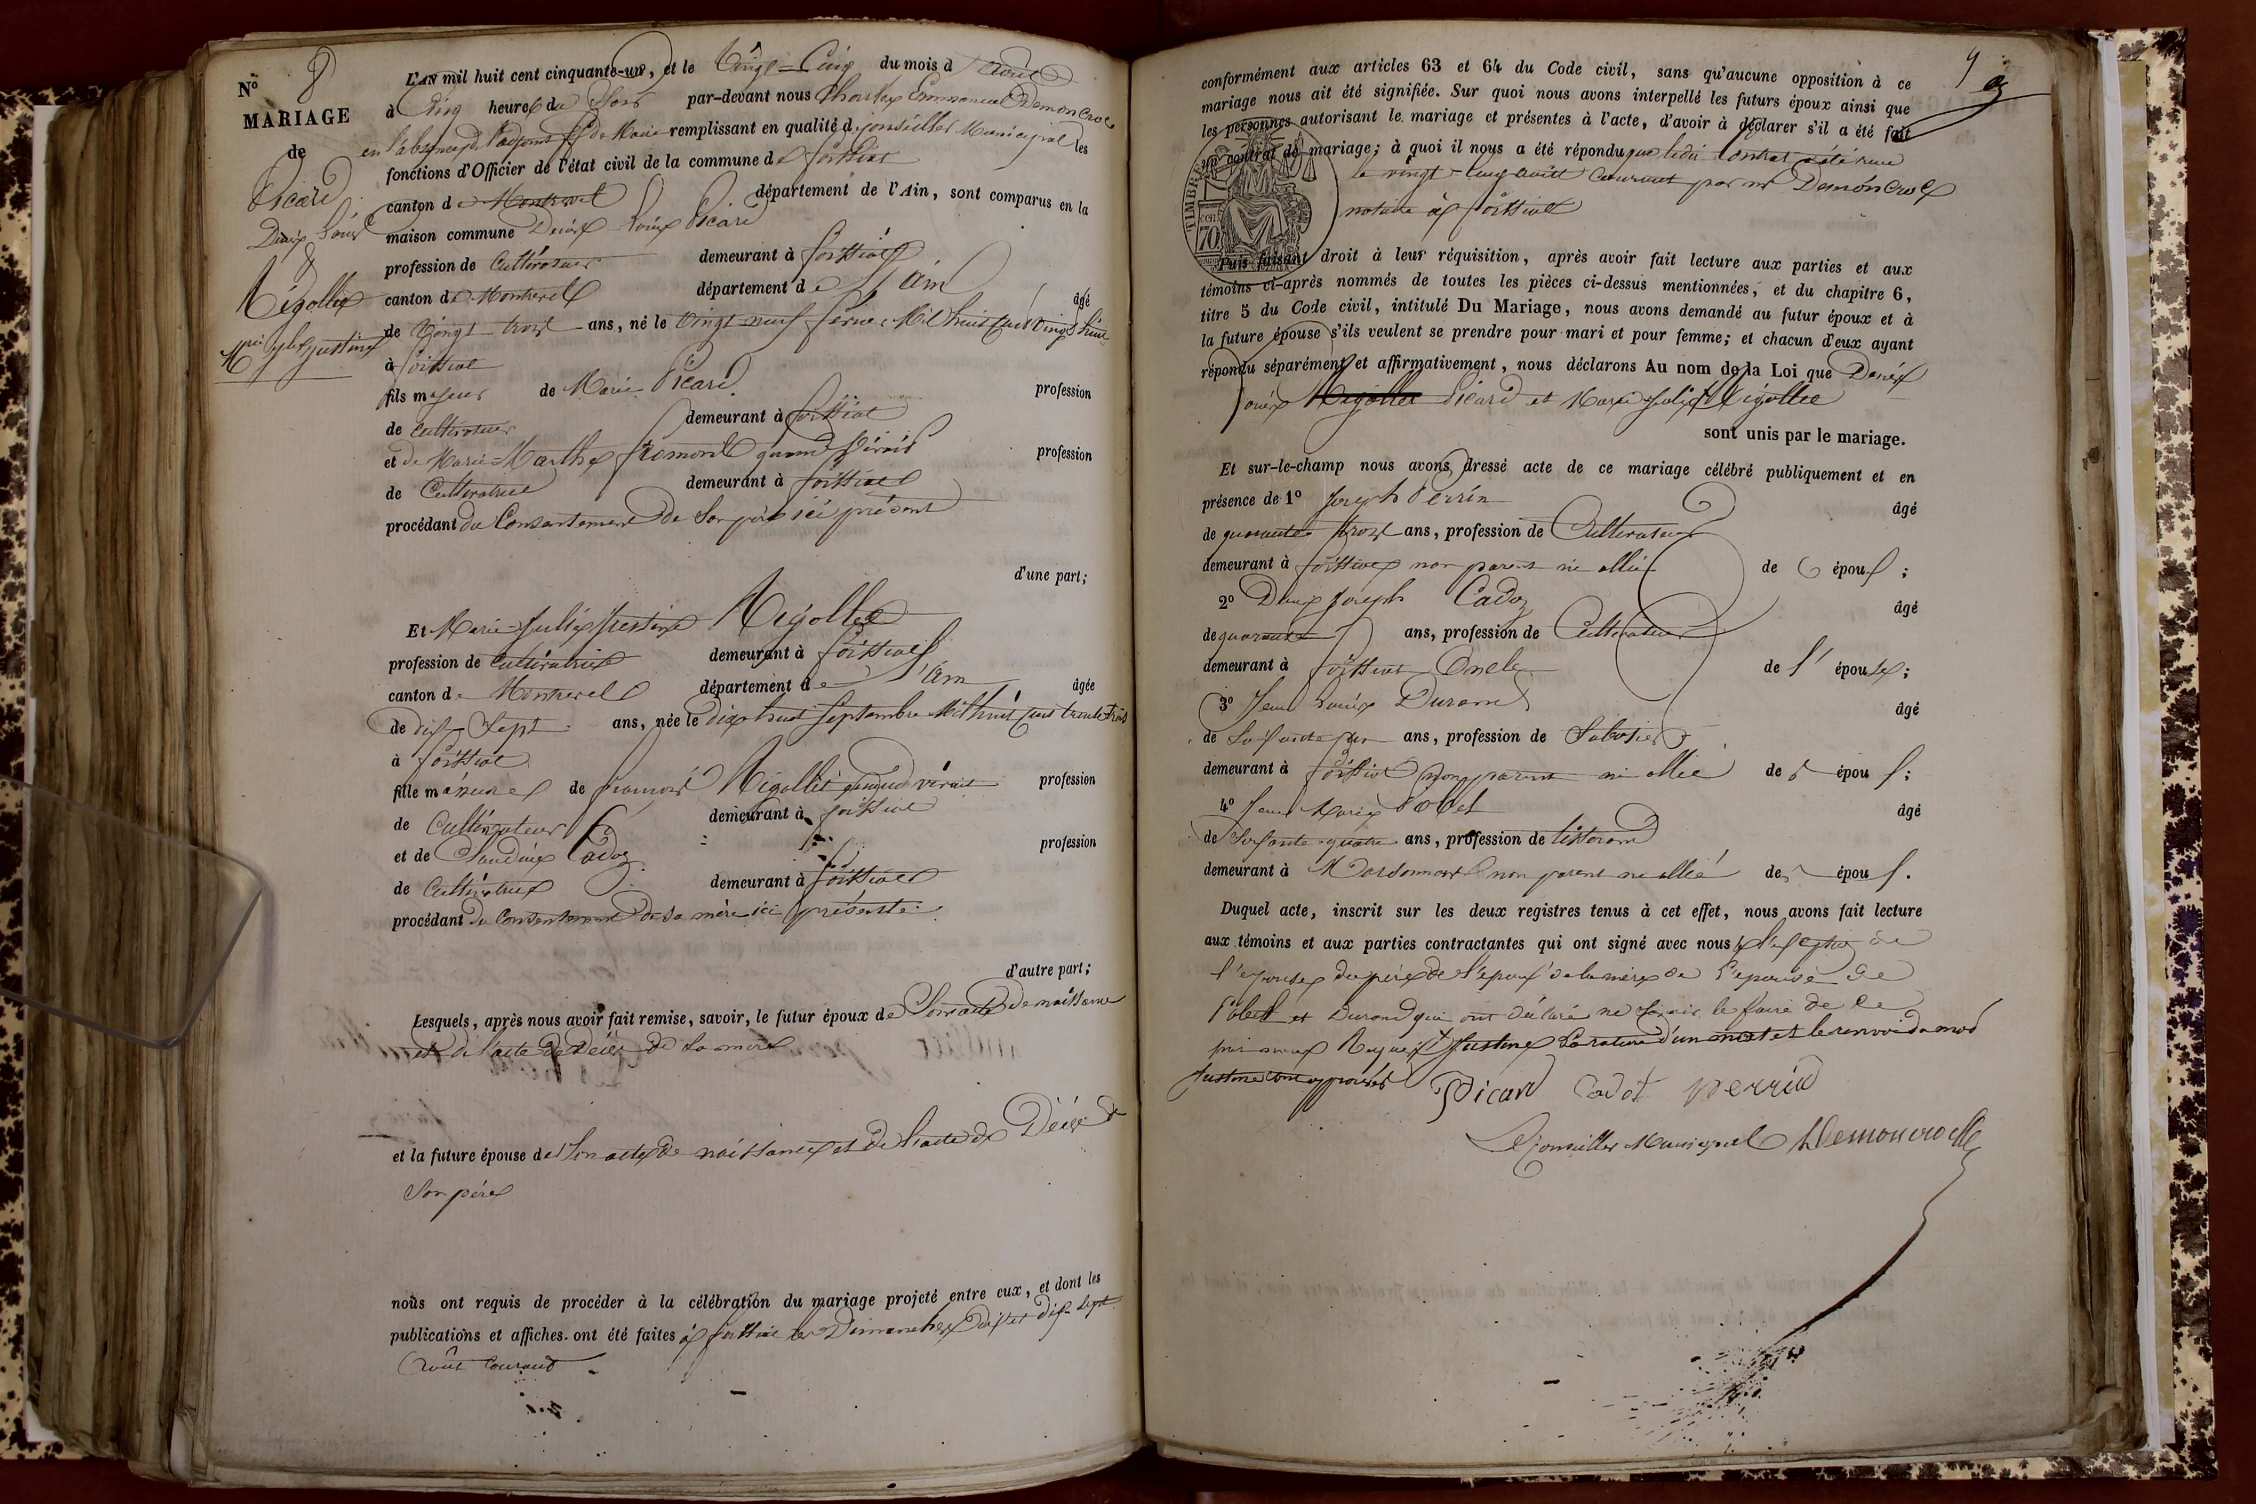 N° 8
MARIAGE
de
Picard
Denis Louis
&
Rigollet
Mie Julie Justine
L'AN mil huit cent cinquante-un, et le Vingt-Cinq du mois d'août
à Cinq heures du Soir par-devant nous Emmanuel Demoncroc
en l'absence de l'adjoint de Maire remplissant en qualité de conseiller Municipal les
fonctions d'Officier de l'état civil de la commune de foissiat
canton de Montrevel département de l'Ain, sont comparus en la
maison commune Denis Louis Picard
profession de Cultivateur demeurant à foissiat
canton de Montrevel département de l'ain âgé
de Vingt trois ans, né le Vingt neuf février Mil huit cent vingt huit
à foissiat
fils majeur de Marie Picard profession
de cultivateur demeurant à foissiat
et de Marie-Marthe fromont quand vivait profession
de Cultivatrice demeurant à foissiat
procédant du Consentement de Son père ici présent
d'une part;
Et Marie Julie Justine Rigollet
profession de Cultivatrice demeurant à foissiat
canton de Montrevel département de l'ain âgée
de dix Sept ans, née le dix huit Septembre Mil huit cent trente trois
à foissiat
fille mineure de françois Rigollet quand vivait profession
de Cultivateur demeurant à foissiat
et de Claudine Cadoz profession
de Cultivatrice demeurant à foissiat
procédant du Consentement de Sa mère ici présente
d'autre part;
Lesquels, après nous avoir fait remise, savoir, le futur époux de Son acte de naissance
et de l'acte de Décès de Sa mère
et la future épouse de Son acte de naissance et de l'acte de Décès de
Son père
nous ont requis de procéder à la célébration du mariage projeté entre eux, et dont les
publications et affiches ont été faites à foissiat les Dimanches Dix et dix-Sept
août Courant
9
conformément aux articles 63 et 64 du Code civil, sans qu'aucune opposition à ce
mariage nous ait été signifiée. Sur quoi nous avons interpellé les futurs époux ainsi que
les personnes autorisant le mariage et présentes à l'acte, d'avoir à déclarer s'il a été fait
un contrat de mariage; à quoi il nous a été répondu que ledit Contrat a été reçu
le vingt-Cinq août Courant par me Demoncroc
notaire à foissiat
TIMBRE
70
Puis faisant droit à leur réquisition, après avoir fait lecture aux parties et aux
témoins ci-après nommés de toutes les pièces ci-dessus mentionnées, et du chapitre 6,
titre 5 du Code civil, intitulé Du Mariage, nous avons demandé au futur époux et à
la future épouse s'ils veulent se prendre pour mari et pour femme; et chacun d'eux ayant
répondu séparément et affirmativement, nous déclarons Au nom de la Loi que Denis
Louis Rigollet Picard et Marie Julie Rigollet
sont unis par le mariage.
Et sur-le-champ nous avons dressé acte de ce mariage célébré publiquement et en
présence de 1° Joseph Perrin âgé
de quarante trois ans, profession de Cultivateur
demeurant à foissiat non parent ni allié des époux;
2° Denis Joseph Cadoz âgé
de quarante ans, profession de Cultivateur
demeurant à foissiat Oncle de l'épouse;
3° Jean Louis Durand âgé
de Soixante un ans, profession de Sabotier
demeurant à foissiat non parent ni allié des époux;
4° Jean Marie Pobel âgé
de Soixante-quatre ans, profession de tisserand
demeurant à Marsonnas non parent ni allié des époux.
Duquel acte, inscrit sur les deux registres tenus à cet effet, nous avons fait lecture
aux témoins et aux parties contractantes qui ont signé avec nous à l'exception de
l'épouse du père de l'époux de la mère de l'épouse de
Pobel et Durand qui ont déclaré ne savoir le faire de ce
Requis Justine La rature d'un mot et le renvoi du mot
Justine sont approuvés
Picard Cadot Perrin
Le Conseiller Municipal Demoncroc